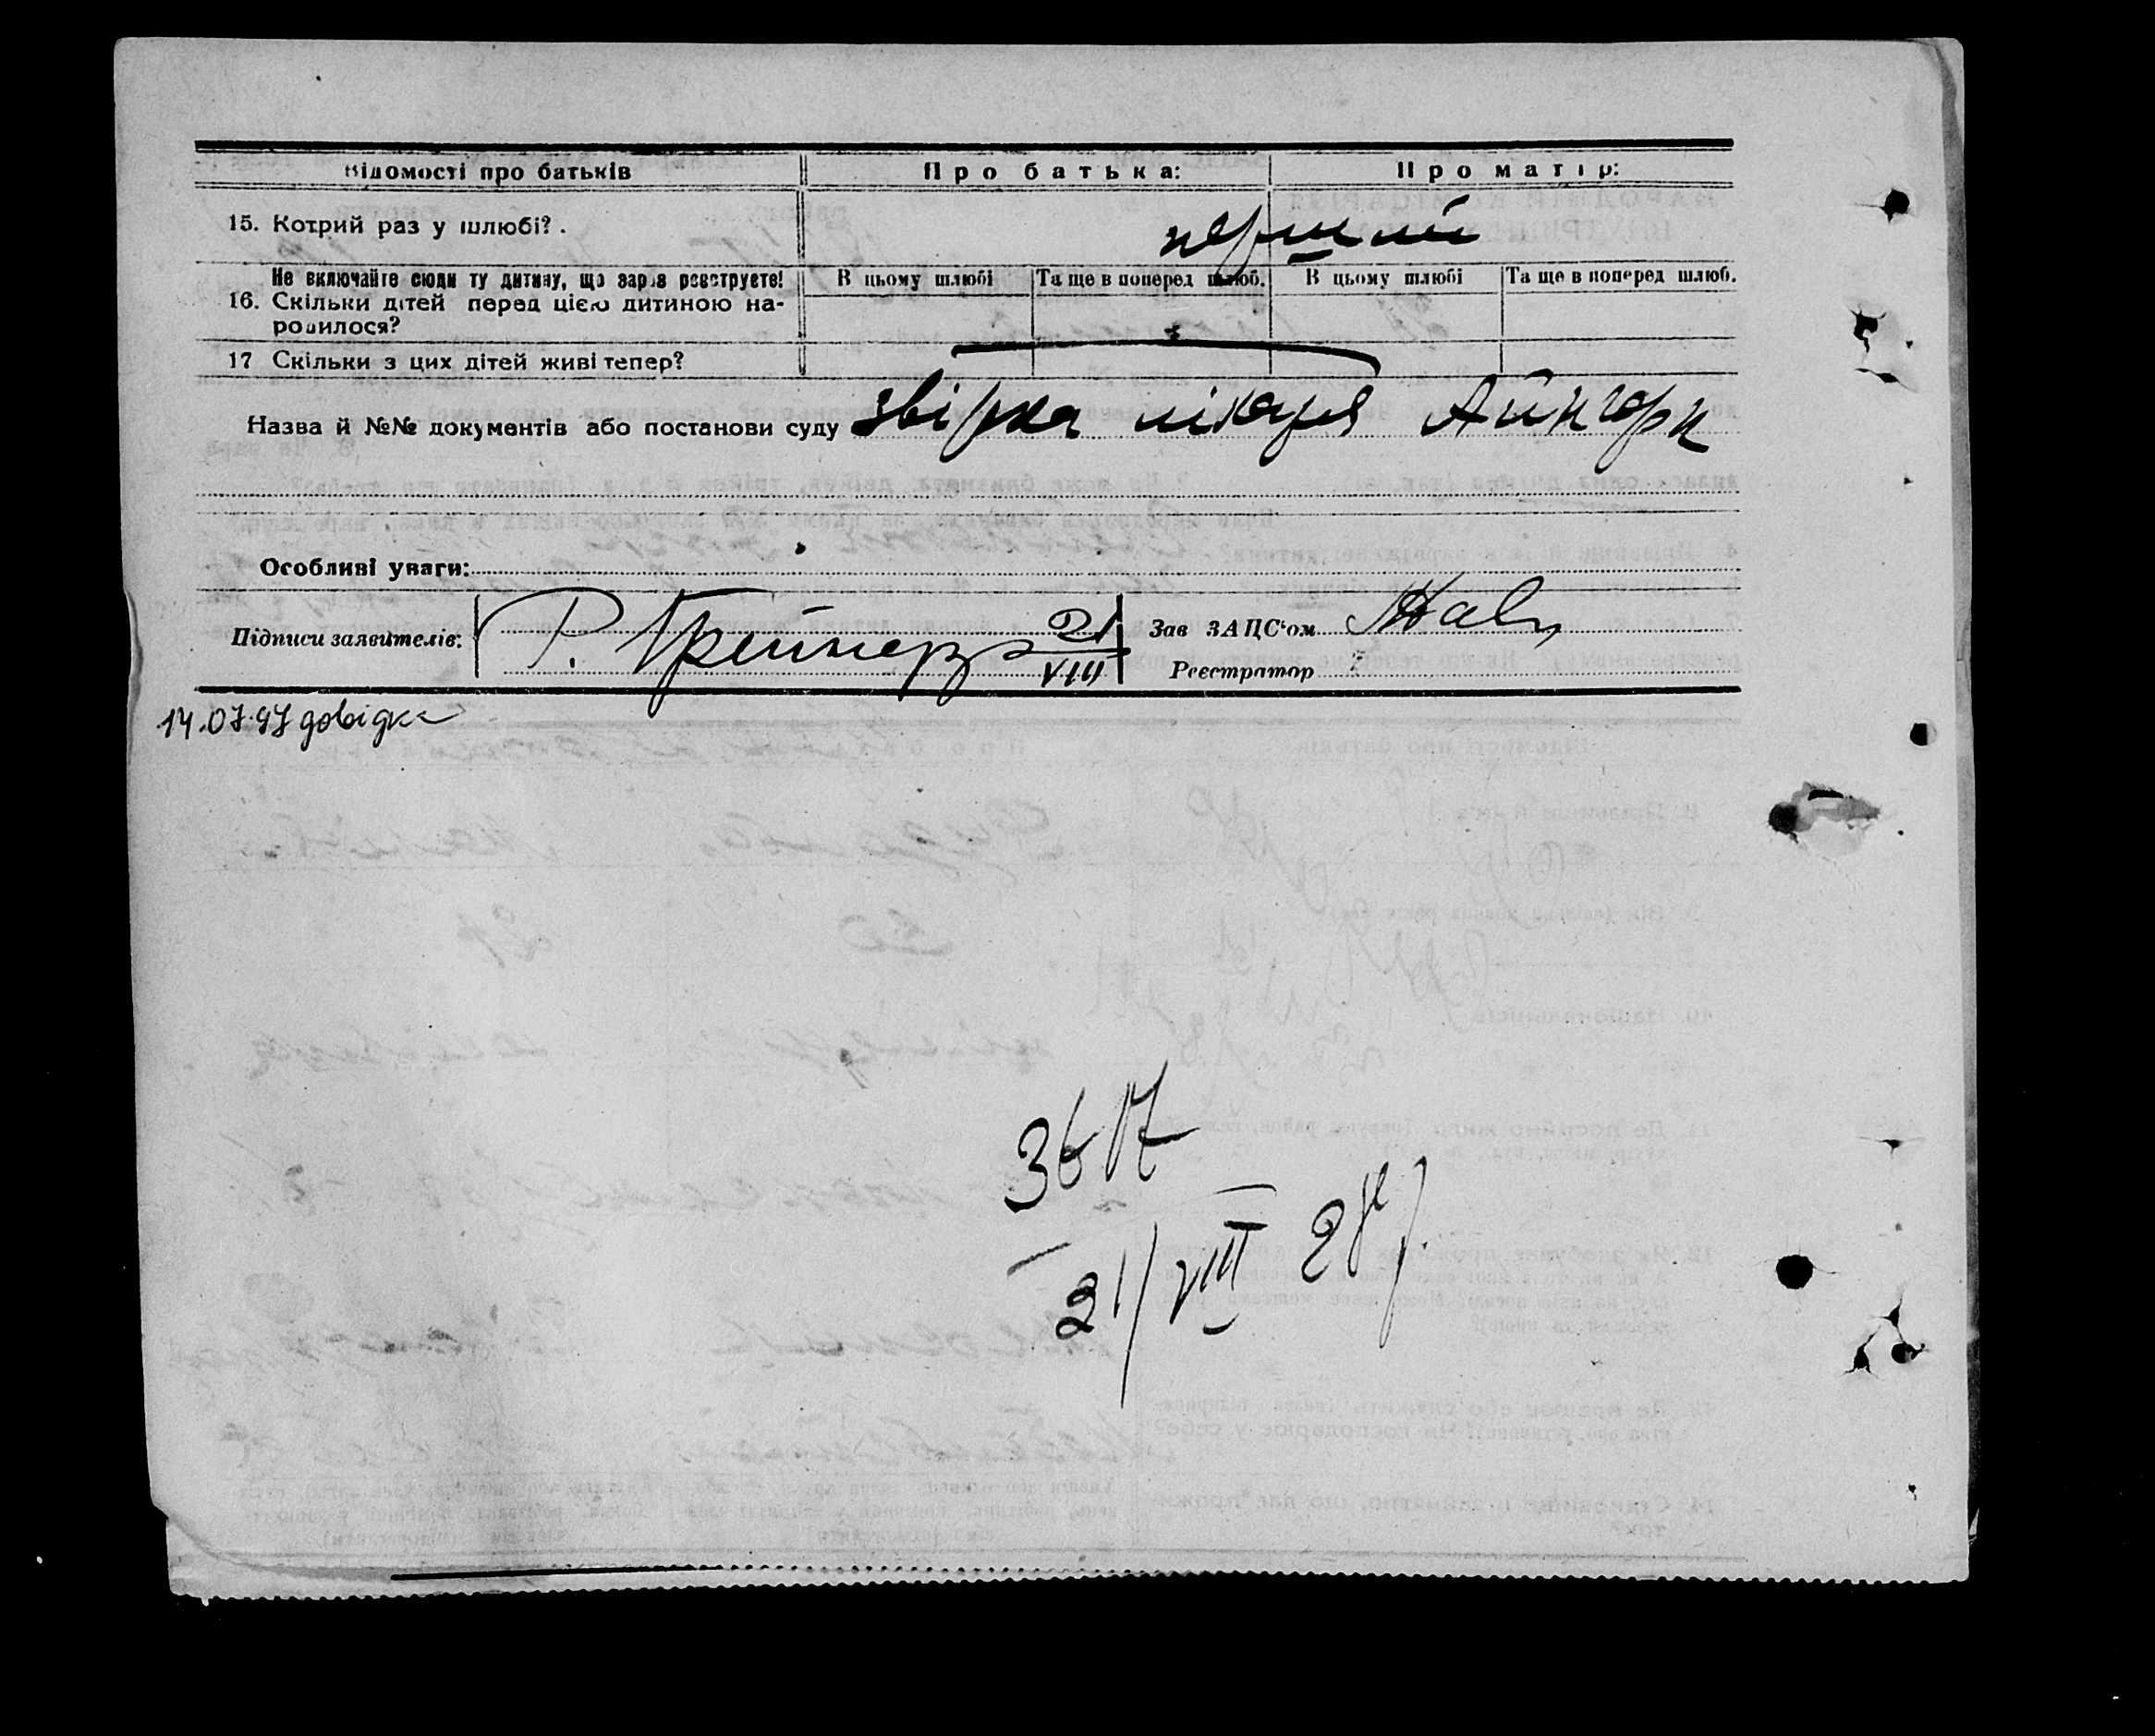 Відомості про батьків Про батька: Про матір:
15. Котрий раз у шлюбі? . перший
Не включайте сюди ту дитину, що зараз реєструєте! В цьому шлюбі Та ще в поперед шлюб. В цьому шлюбі Та ще в поперед шлюб.
16. Скільки дітей перед цією дитиною на-
родилося?
17 Скільки з цих дітей живі тепер?
Назва й №№ документів або постанови суду звірка лікаря Айнгорн
Особливі уваги:
Підписи заявителів: Р. Грейнер 21/VIII Зав ЗАЦС'ом
Реєстратор
14.07.97 довідка
3617
21/VIII 28 р.